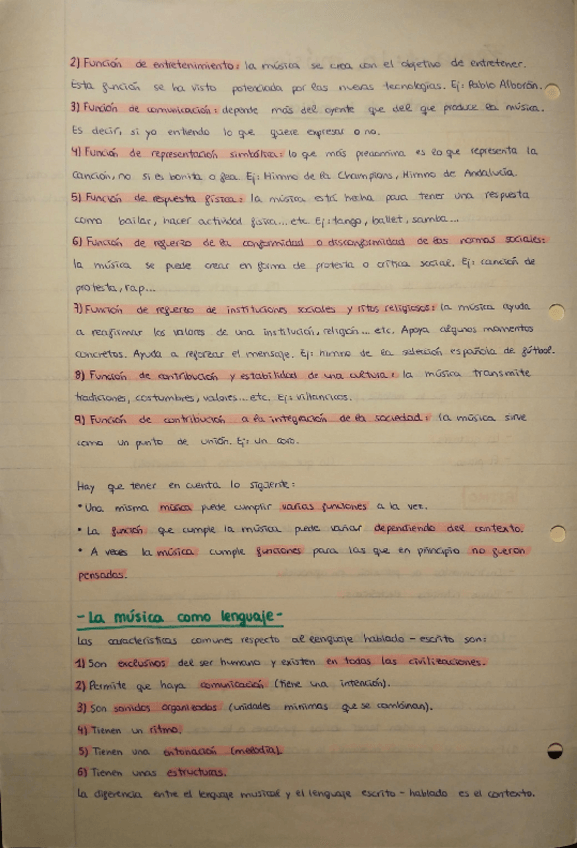 2) Función de entretenimiento: la música se crea con el objetivo de entretener.
Esta función se ha visto potenciada por las nuevas tecnologías. Ej: Pablo Alborán.
3) Función de comunicación: depende más del oyente que del que produce la música.
Es decir, si yo entiendo lo que quiere expresar o no.
4) Función de representación simbólica: lo que más predomina es lo que representa la
canción, no si es bonita o fea. Ej: Himno de la Champions, Himno de Andalucía.
5) Función de respuesta física: la música está hecha para tener una respuesta
como bailar, hacer actividad física... etc. Ej: tango, ballet, samba...
6) Función de refuerzo de la conformidad o disconformidad de las normas sociales:
la música se puede crear en forma de protesta o crítica social. Ej: canción de
protesta, rap...
7) Función de refuerzo de instituciones sociales y ritos religiosos: la música ayuda
a reafirmar los valores de una institución, religión... etc. Apoya algunos momentos
concretos. Ayuda a reforzar el mensaje. Ej: himno de la selección española de fútbol.
8) Función de contribución y estabilidad de una cultura: la música transmite
tradiciones, costumbres, valores... etc. Ej: villancicos.
9) Función de contribución a la integración de la sociedad: la música sirve
como un punto de unión. Ej: un coro.
Hay que tener en cuenta lo siguiente:
• Una misma música puede cumplir varias funciones a la vez.
• La función que cumple la música puede variar dependiendo del contexto.
• A veces la música cumple funciones para las que en principio no fueron
pensadas.
- La música como lenguaje -
Las características comunes respecto al lenguaje hablado - escrito son:
1) Son exclusivos del ser humano y existen en todas las civilizaciones.
2) Permite que haya comunicación (tiene una intención).
3) Son sonidos organizados (unidades mínimas que se combinan).
4) Tienen un ritmo.
5) Tienen una entonación (melodía).
6) Tienen unas estructuras.
La diferencia entre el lenguaje musical y el lenguaje escrito - hablado es el contexto.